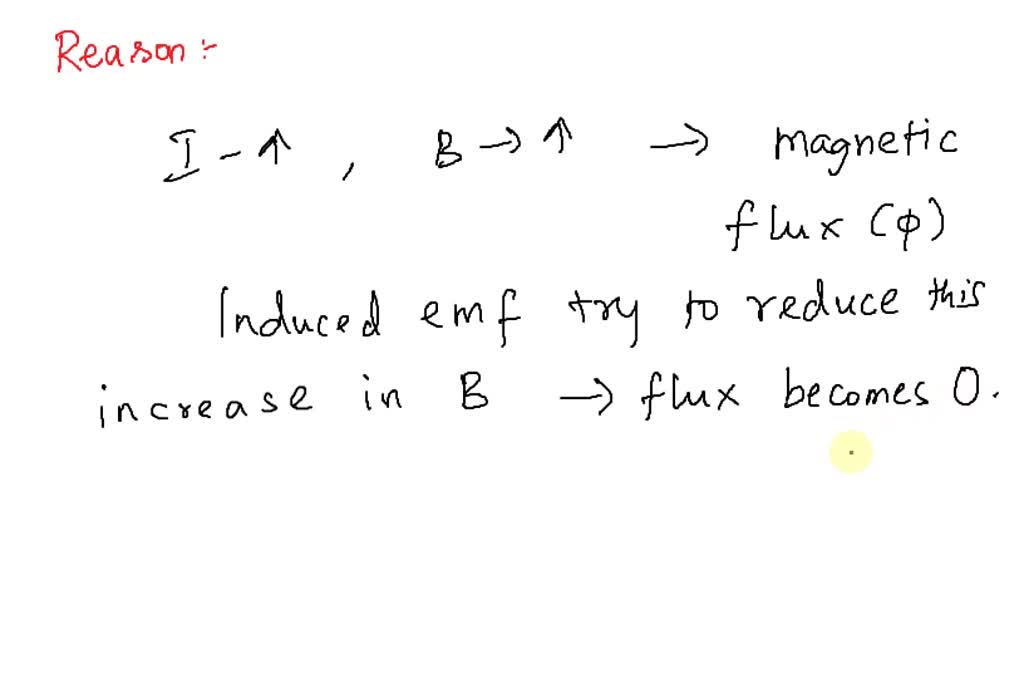 Reason :-
I - ↑ , B → ↑ → magnetic
flux (φ)
Induced emf try to reduce this
increase in B → flux becomes 0.